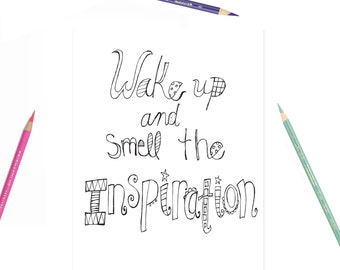 Wake up
and
smell the
Inspiration